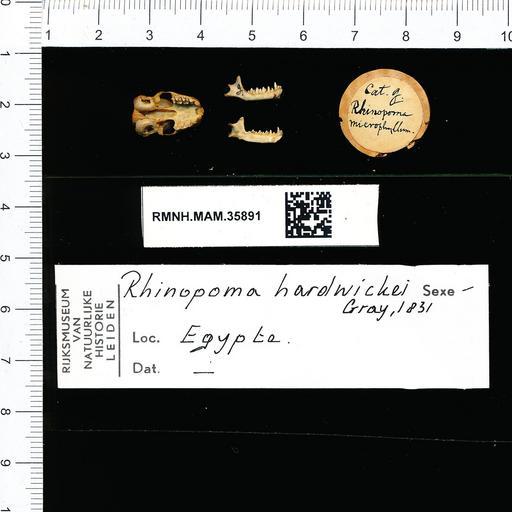 1 2 3 4 5 6 7 8 9 10
1
2
3
4
5
6
7
8
9
Cat. g.
Rhinopoma
microphyllum.
RMNH.MAM.35891
RIJKSMUSEUM
VAN
NATUURLIJKE
HISTORIE
LEIDEN
Rhinopoma hardwickei Sexe –
Gray, 1831
Loc. Egypte.
Dat. —